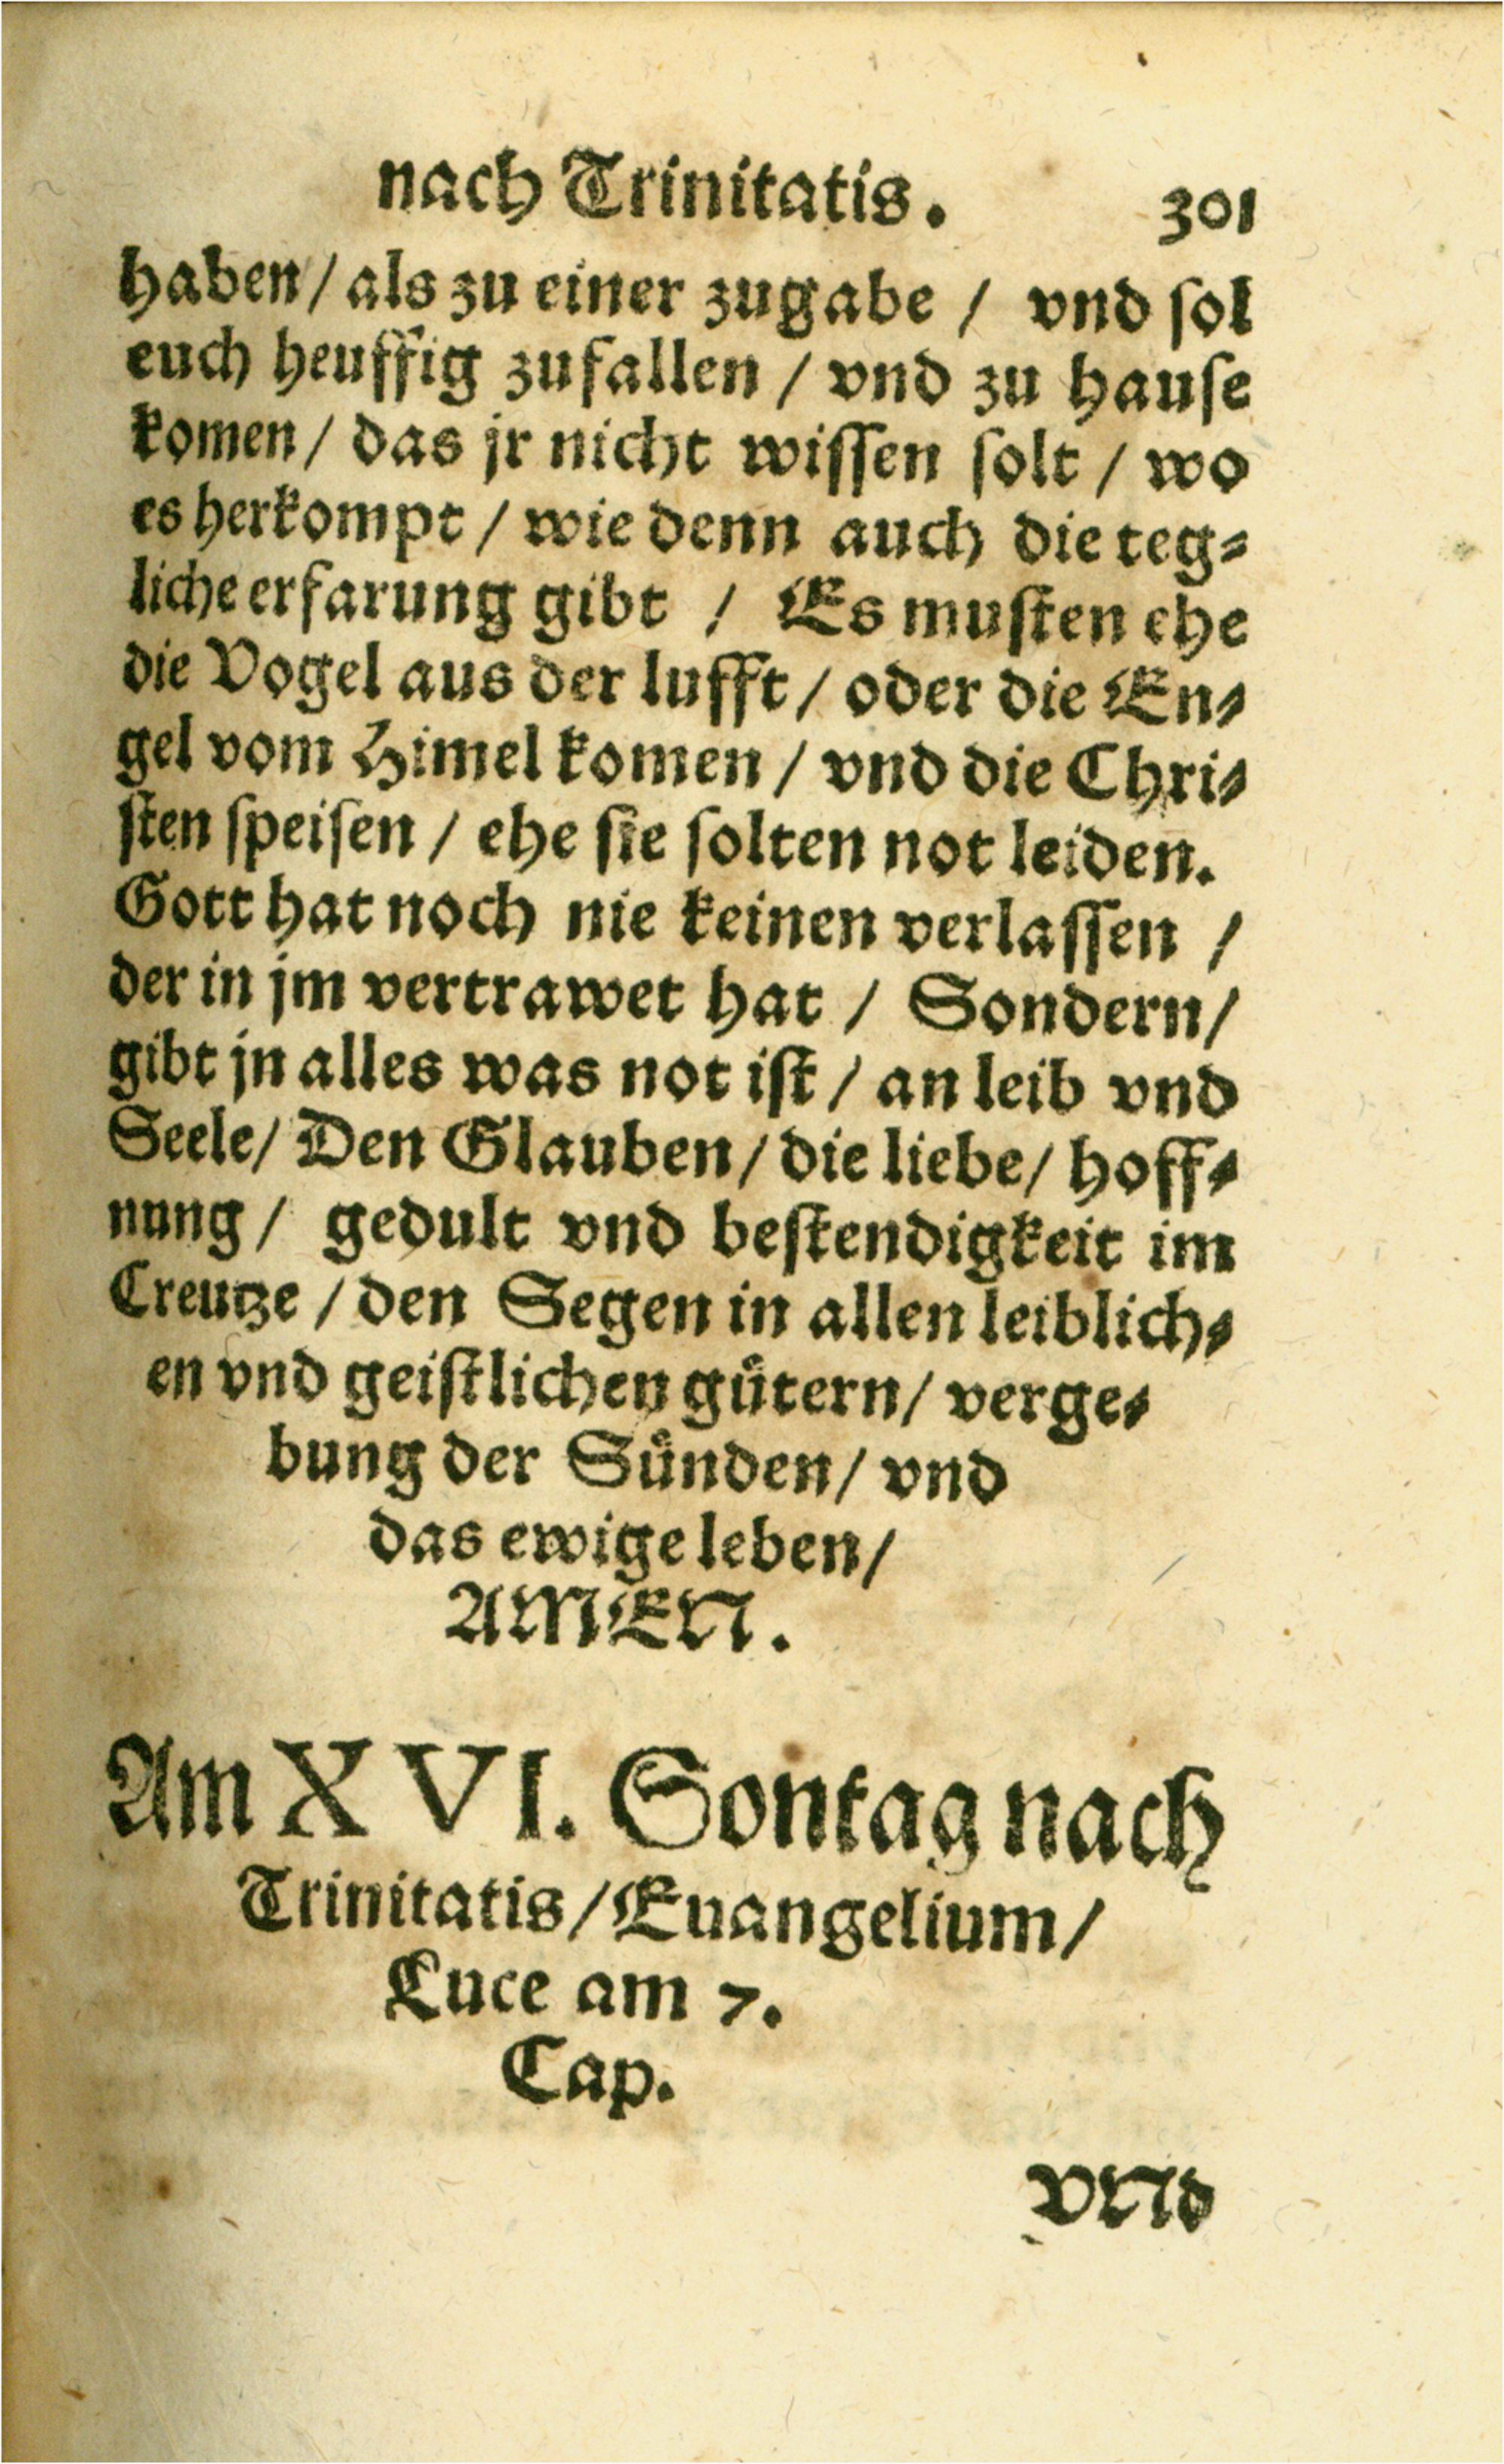 nach Trinitatis. 301
haben/ als zu einer zugabe / vnd ſol
euch heuffig zufallen / vnd zu hauſe
komen/ das jr nicht wiſſen ſolt / wo
es herkompt / wie denn auch die teg⸗
liche erfarung gibt / Es muſten ehe
die Vogel aus der lufft / oder die En⸗
gel vom Himel komen / vnd die Chri⸗
ſten ſpeiſen / ehe ſie ſolten not leiden.
Gott hat noch nie keinen verlaſſen /
der in jm vertrawet hat / Sondern/
gibt jn alles was not iſt / an leib vnd
Seele/ Den Glauben/ die liebe/ hoff⸗
nung/ gedult vnd beſtendigkeit im
Creutze / den Segen in allen leiblich⸗
en vnd geiſtlichen guͤtern/ verge⸗
bung der Suͤnden/ vnd
das ewige leben/
AMEN.
Am XVI. Sontag nach
Trinitatis/ Euangelium/
Luce am 7.
Cap.
VNd